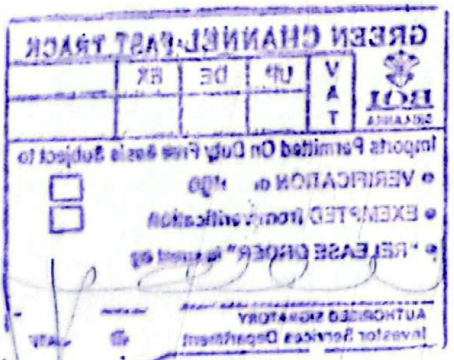 GREEN CHANNEL-FAST TRACK
BOI
SRI LANKA
VAT UP DE EK
Imports Permitted On Duty Free Basis Subject to
• VERIFICATION
• EXEMPTED from verification
• "RELEASE ORDER" issued by
AUTHORISED SIGNATORY
Investor Services Department